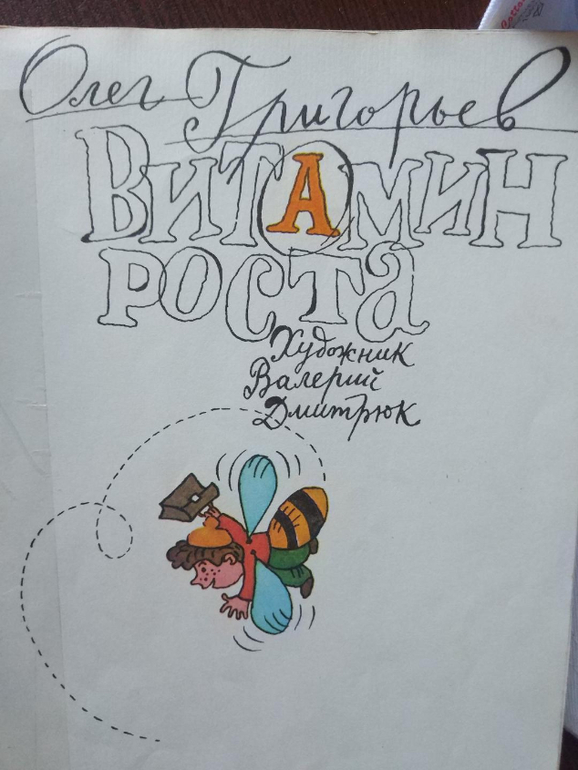 Олег Григорьев
ВИТАМИН
РОСТА
Художник
Валерий
Дмитрюк